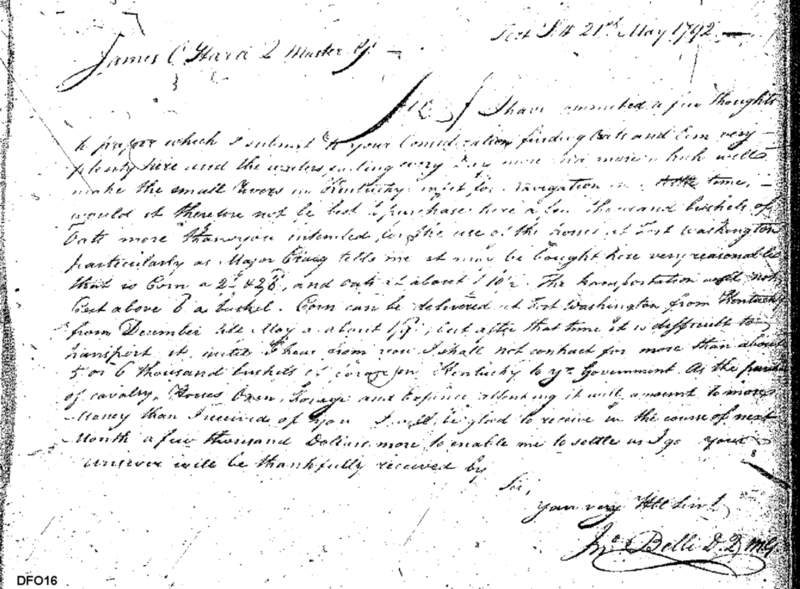 Fort Pitt 21st May 1792
James O Hara Q Master Gl
Sir I have committed a few thoughts
to paper which I submit to your Consideration finding Oats and Corn very
plenty here and the waters falling every Day more and more which will
make the small Rivers in Kentucky unfit for navigation in a little time,
would it therefore not be best to purchase here a few thousand bushels of
Oats more than you intended, for the use of the horses at Fort Washington
particularly as Major Craig tells me it may be bought here very reasonable
that is Corn a 2/ and Oats at about 1/6. The transportation will not
Cost above a bushel. Corn can be delivered at Fort Washington from Kentucky
from December till May a about but after that time it is difficult to
transport it, until I hear from you I shall not contract for more than about
5 or 6 thousand bushels of in Kentucky to ye Government. As the purchase
of cavalry, Horses Oxen, Forage and Expence attending it will amount to more
Money than I received of you I will be glad to receive in the course of next
Month a few thousand Dollars more to enable me to settle as I go your
answer will be thankfully received by
Sir,
Your very Hble Servt
Jno Belli D. Q. M G
DFO16